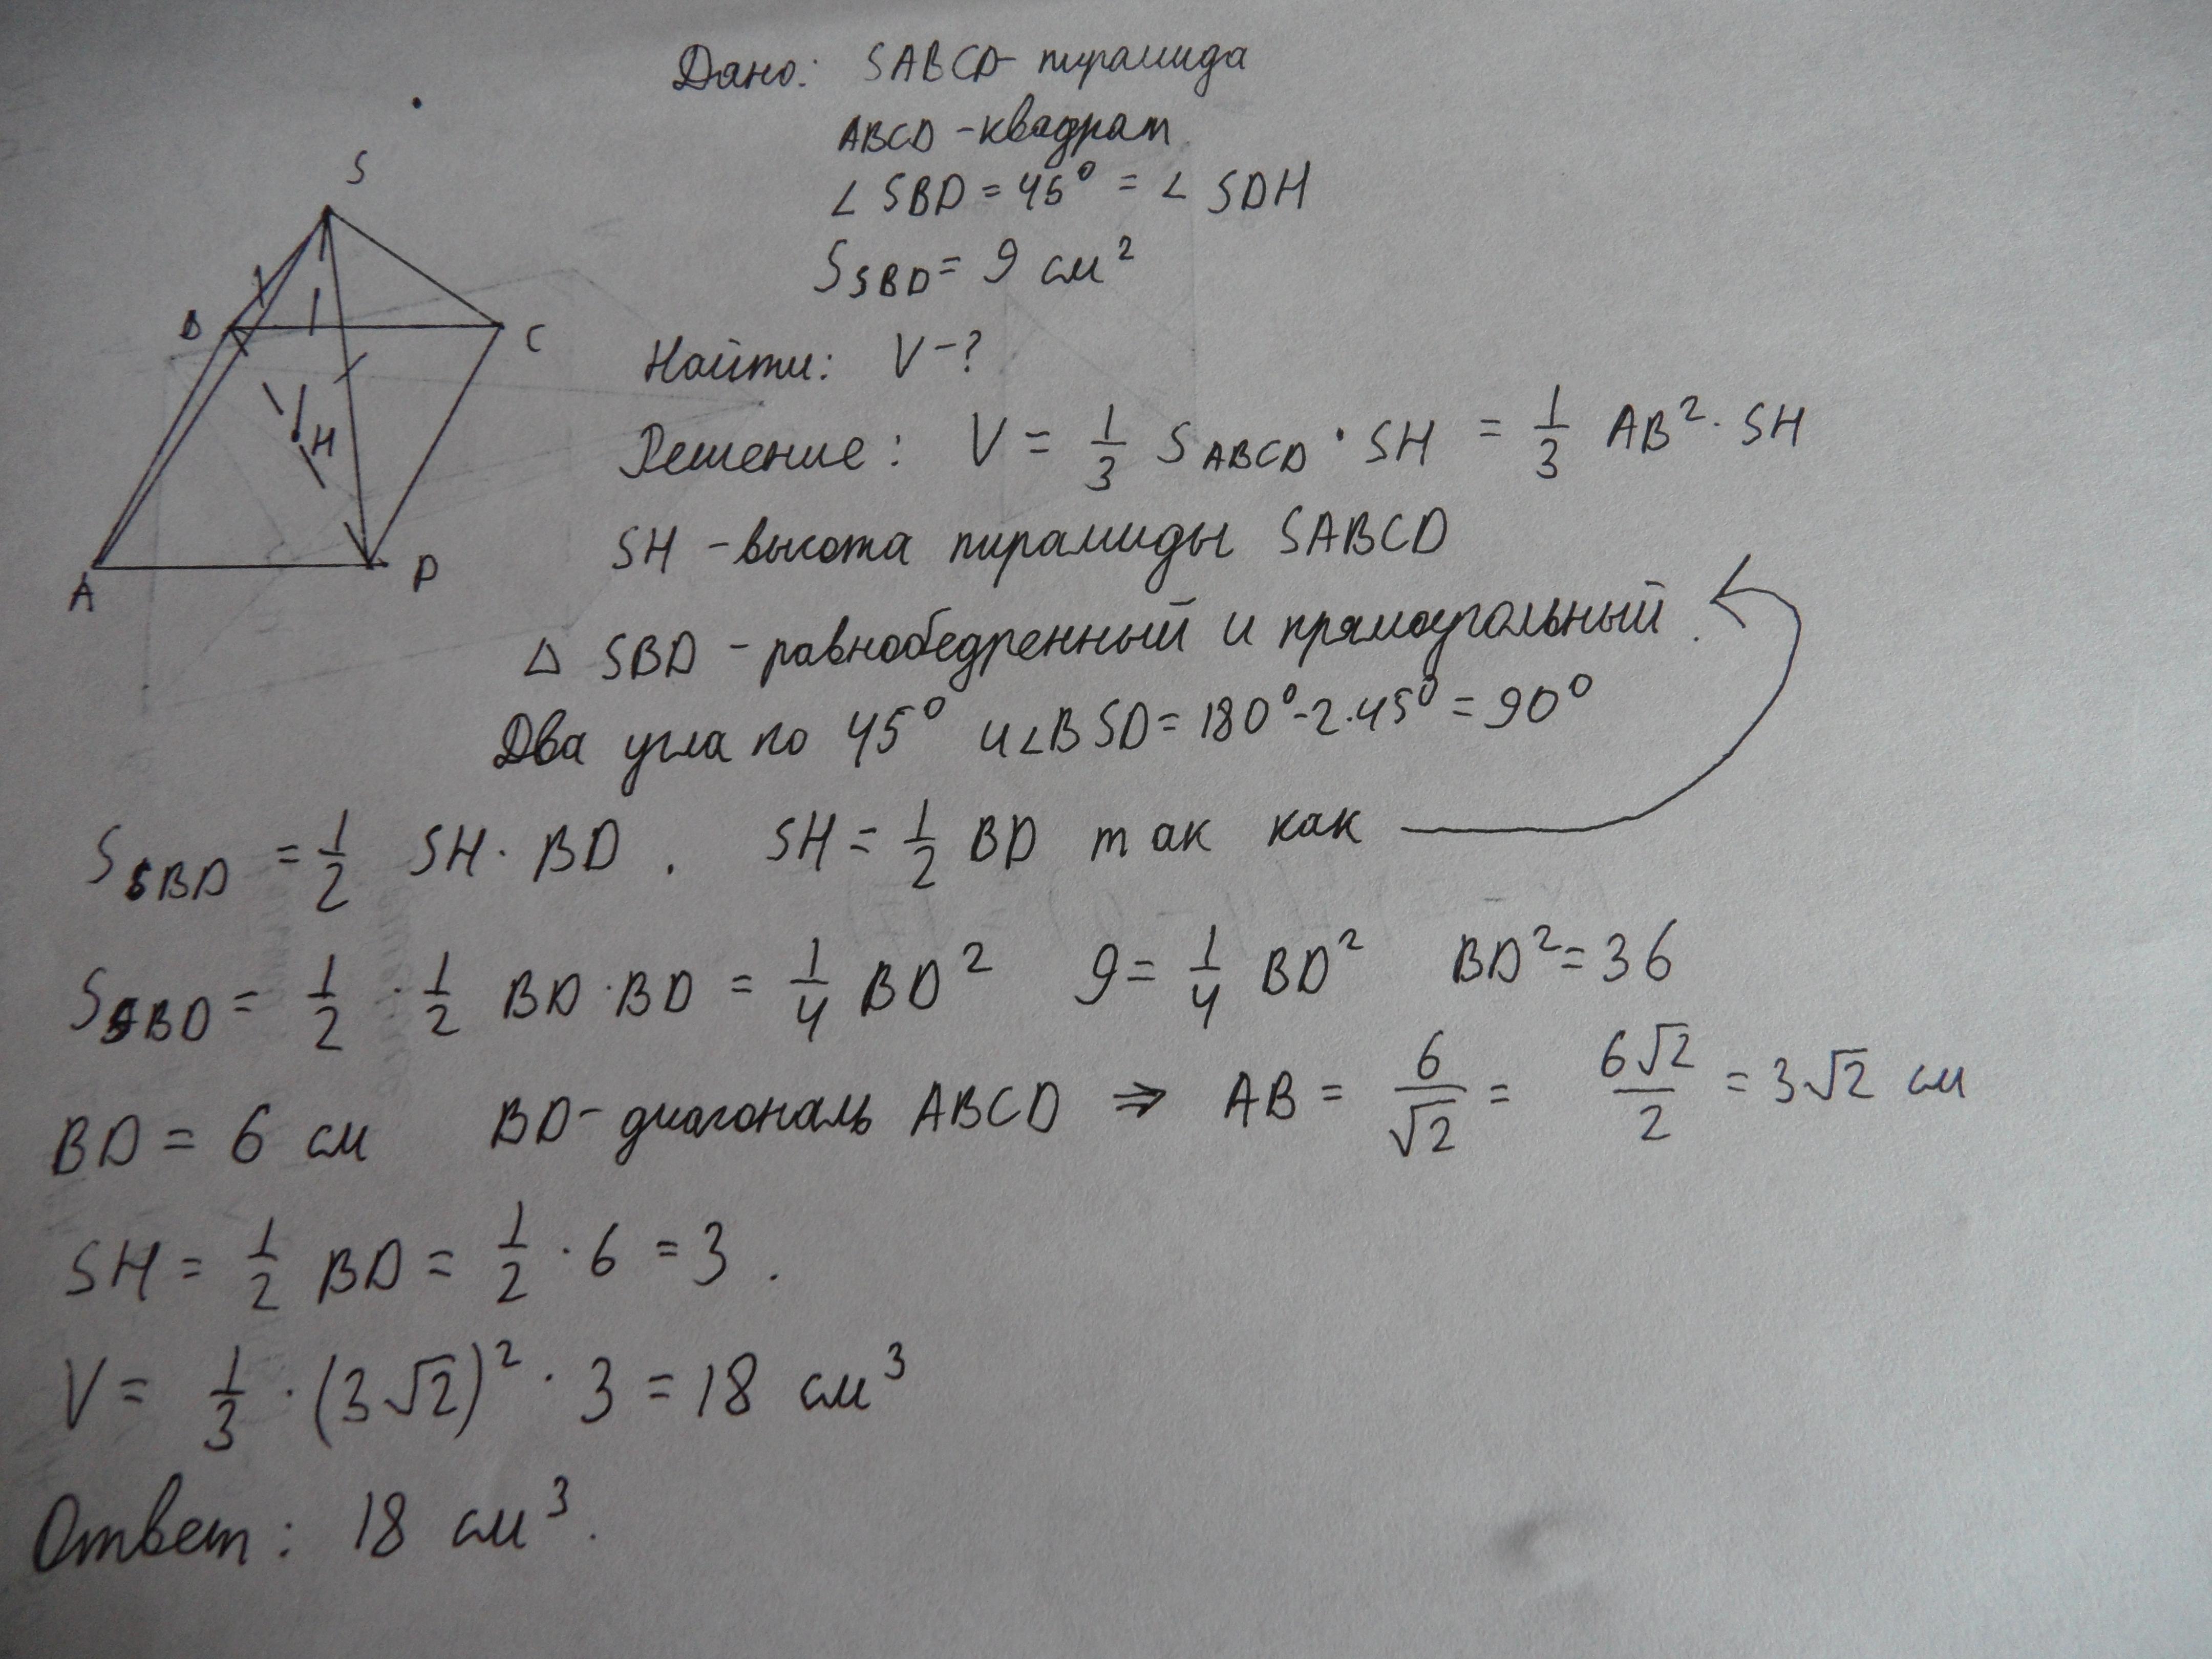 Дано: SABCD - пирамида
ABCD - квадрат
∠ SBD = 45° = ∠ SDH
S_SBD = 9 см²
S
B
C
H
A
D
Найти: V - ?
Решение: V = 1/3 S_ABCD · SH = 1/3 AB² · SH
SH - высота пирамиды SABCD
Δ SBD - равнобедренный и прямоугольный.
Два угла по 45° и ∠BSD = 180° - 2·45° = 90°
S_SBD = 1/2 SH · BD. SH = 1/2 BD так как
S_SBD = 1/2 · 1/2 BD · BD = 1/4 BD² 9 = 1/4 BD² BD² = 36
BD = 6 см BD - диагональ ABCD ⇒ AB = 6/√2 = 6√2/2 = 3√2 см
SH = 1/2 BD = 1/2 · 6 = 3.
V = 1/3 · (3√2)² · 3 = 18 см³
Ответ: 18 см³.